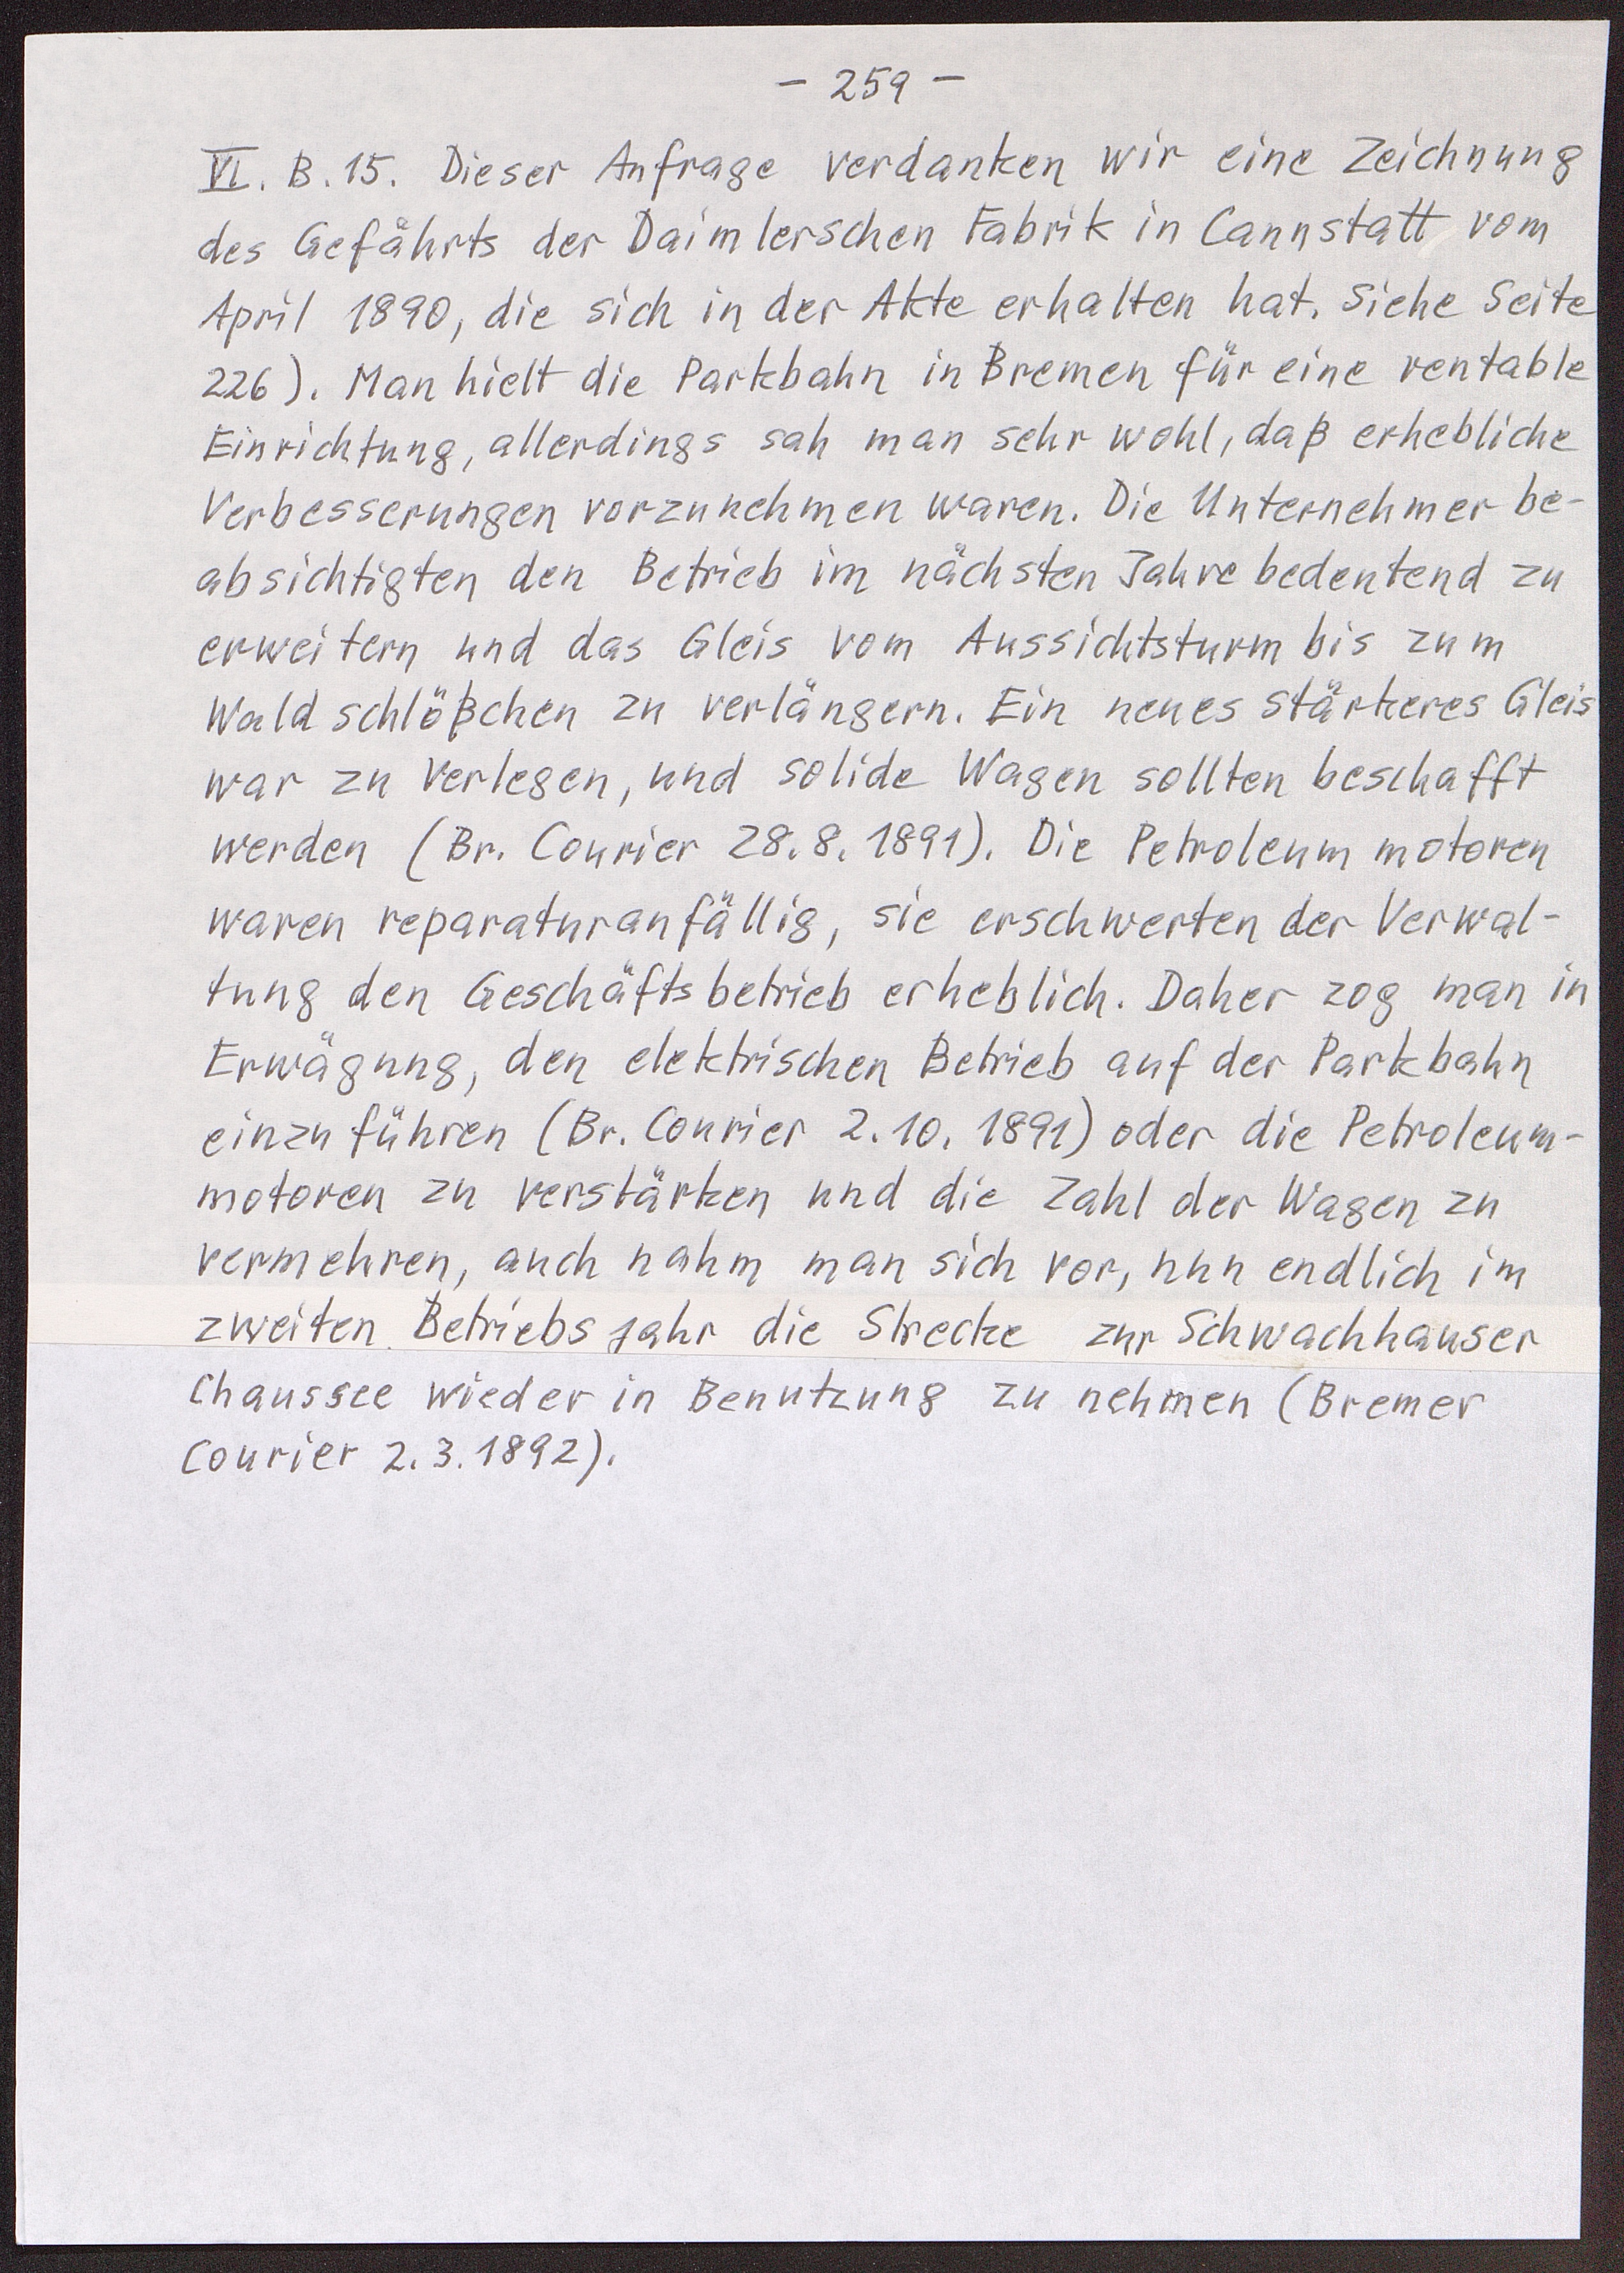 - 259 -
VI. B. 15. Dieser Anfrage verdanken wir eine Zeichnung
des Gefährts der Daimlerschen Fabrik in Cannstatt vom
April 1890, die sich in der Akte erhalten hat. Siehe Seite
226). Man hielt die Parkbahn in Bremen für eine rentable
Einrichtung, allerdings sah man sehr wohl, daß erhebliche
Verbesserungen vorzunehmen waren. Die Unternehmer be-
absichtigten den Betrieb im nächsten Jahre bedeutend zu
erweitern und das Gleis vom Aussichtsturm bis zum
Waldschlößchen zu verlängern. Ein neues stärkeres Gleis
war zu verlegen, und solide Wagen sollten beschafft
werden (Br. Courier 28.8.1891). Die Petroleummotoren
waren reparaturanfällig, sie erschwerten der Verwal-
tung den Geschäftsbetrieb erheblich. Daher zog man in
Erwägung, den elektrischen Betrieb auf der Parkbahn
einzuführen (Br. Courier 2.10.1891) oder die Petroleum-
motoren zu verstärken und die Zahl der Wagen zu
vermehren, auch nahm man sich vor, nun endlich im
zweiten Betriebsjahr die Strecke zur Schwachhauser
Chaussee wieder in Benutzung zu nehmen (Bremer
Courier 2.3.1892).